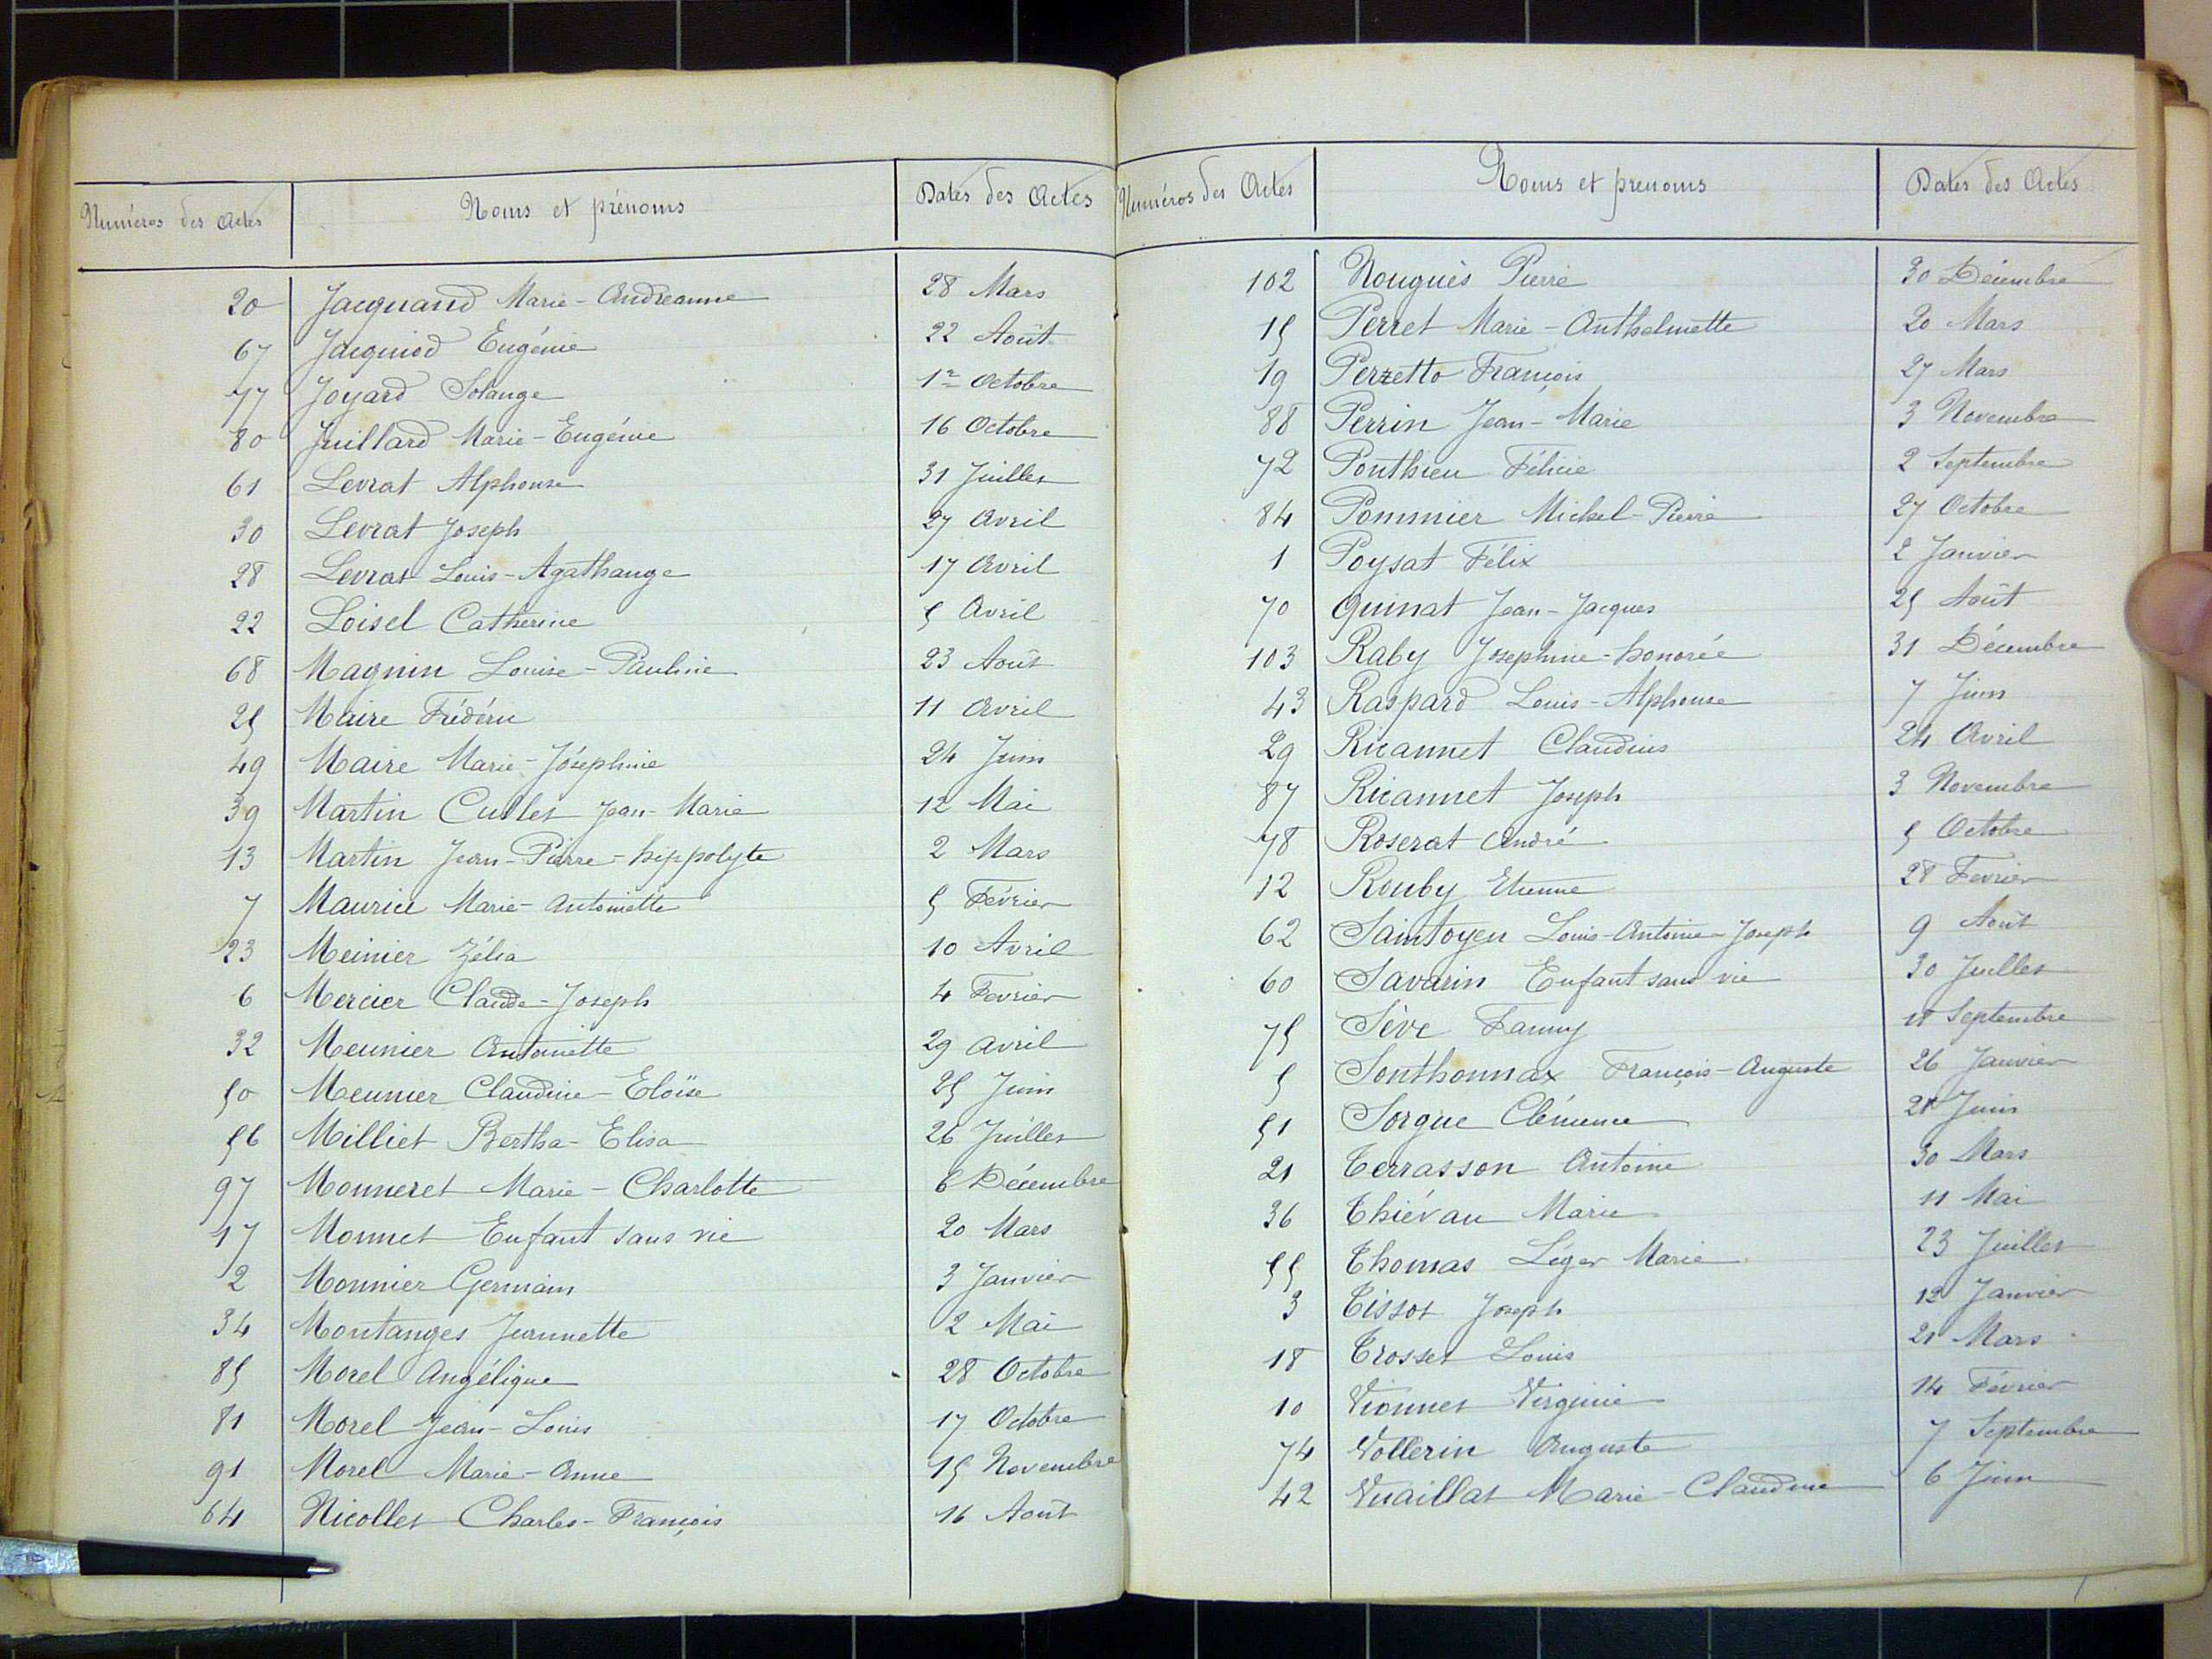 Numéros des Actes Noms et prénoms Dates des Actes
20 Jacquand Marie-Andréanne 28 Mars
67 Jacquiod Eugénie 22 Août
77 Joyard Solange 1er Octobre
80 Juillard Marie-Eugénie 16 Octobre
61 Levrat Alphonse 31 Juillet
30 Levrat Joseph 27 Avril
28 Levrat Louis-Agathange 17 Avril
22 Loisel Catherine 5 Avril
68 Magnin Louise-Pauline 23 Août
25 Maire Frédéric 11 Avril
49 Maire Marie-Joséphine 24 Juin
39 Martin Cullet Jean-Marie 12 Mai
13 Martin Jean-Pierre-hippolyte 2 Mars
7 Maurice Marie-Antoinette 5 Février
23 Meinier Zélia 10 Avril
6 Mercier Claude-Joseph 4 Fevrier
32 Meunier Antoinette 29 Avril
50 Meunier Claudine-Eloïse 25 Juin
56 Milliet Bertha-Elisa 26 Juillet
97 Monneret Marie-Charlotte 6 Décembre
17 Monnet Enfant sans vie 20 Mars
2 Monnier Germain 3 Janvier
34 Montanges Jeannette 2 Mai
85 Morel Angélique 28 Octobre
81 Morel Jean-Louis 17 Octobre
91 Morel Marie-Anne 15 Novembre
64 Nicollet Charles-François 16 Août
Numéros des Actes Noms et prenoms Dates des Actes
102 Nouguès Pierre 30 Décembre
15 Perret Marie-Anthelmette 20 Mars
19 Perzetto François 27 Mars
88 Perrin Jean-Marie 3 Novembre
72 Ponthieu Félicie 2 Septembre
84 Pommier Michel-Pierre 27 Octobre
1 Poysat Félix 2 Janvier
70 Quinat Jean-Jacques 25 Août
103 Raby Josephine-honorée 31 Décembre
43 Raspard Louis-Alphonse 7 Juin
29 Ricannet Claudius 24 Avril
87 Ricannet Joseph 3 Novembre
78 Roserat André 5 Octobre
12 Rouby Etienne 28 Fevrier
62 Saintoyen Louis-Antoine-Joseph 9 Août
60 Savarin Enfant sans vie 30 Juillet
75 Sève Fanny Septembre
5 Sonthonnax François-Auguste 26 Janvier
51 Sorgue Clémence Juin
21 Terrasson Antoine 30 Mars
36 Thiévau Marie 11 Mai
55 Thomas Léger Marie 23 Juillet
3 Tissot Joseph 12 Janvier
18 Trosset Louis 21 Mars
10 Vionnet Virginie 14 Février
74 Vollerin Auguste 7 Septembre
42 Vuaillat Marie-Claudine 6 Juin